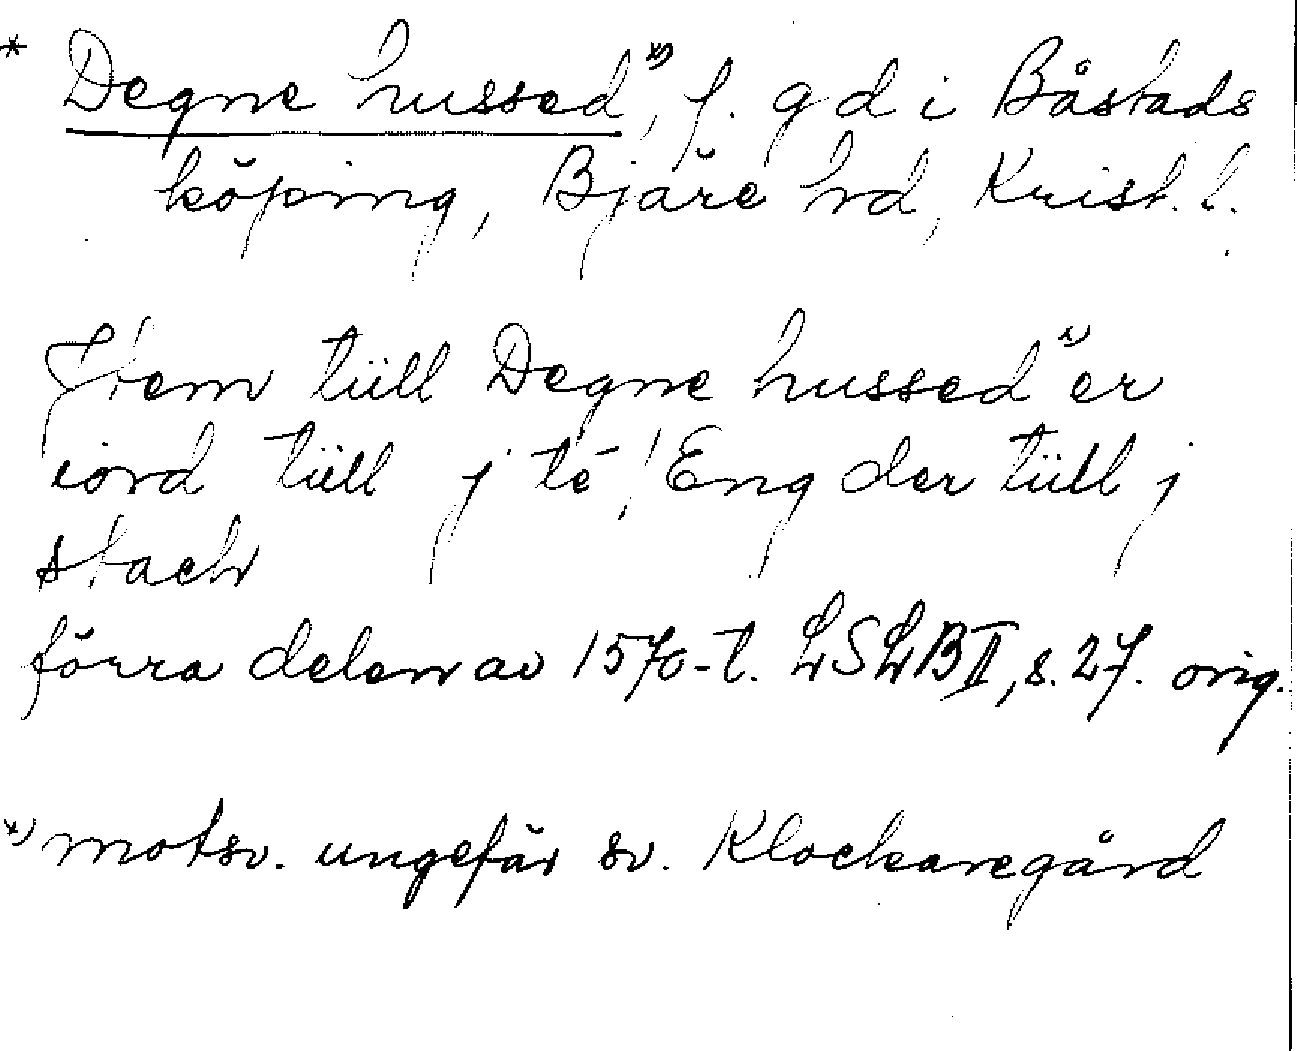 * Degne hussed *), f. gd i Båstads
köping, Bjäre hd, Krist. l.
Jtem tüll Degne hussed *) er
iord tüll j té / Eng der tüll j
stack
förra delen av 1570-t. LSLB II, s. 27. orig.
*) motsv. ungefär sv. Klockaregård